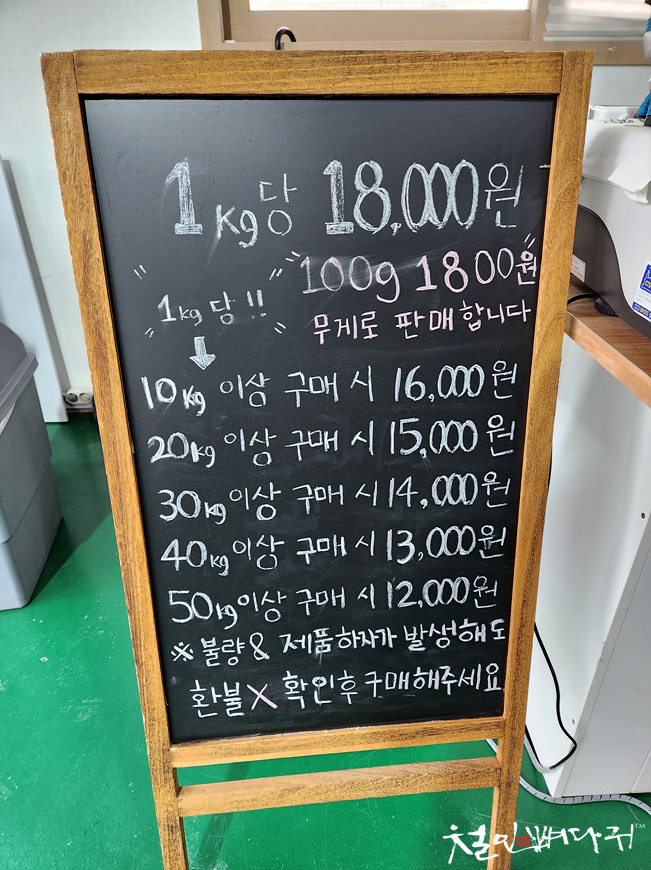 1kg당 18,000원
100g 1800원
1kg 당!!
무게로 판매합니다
10kg 이상 구매 시 16,000원
20kg 이상 구매 시 15,000원
30kg 이상 구매 시 14,000원
40kg 이상 구매 시 13,000원
50kg 이상 구매 시 12,000원
※ 불량 & 제품하자가 발생해도
환불 X 확인후 구매해주세요